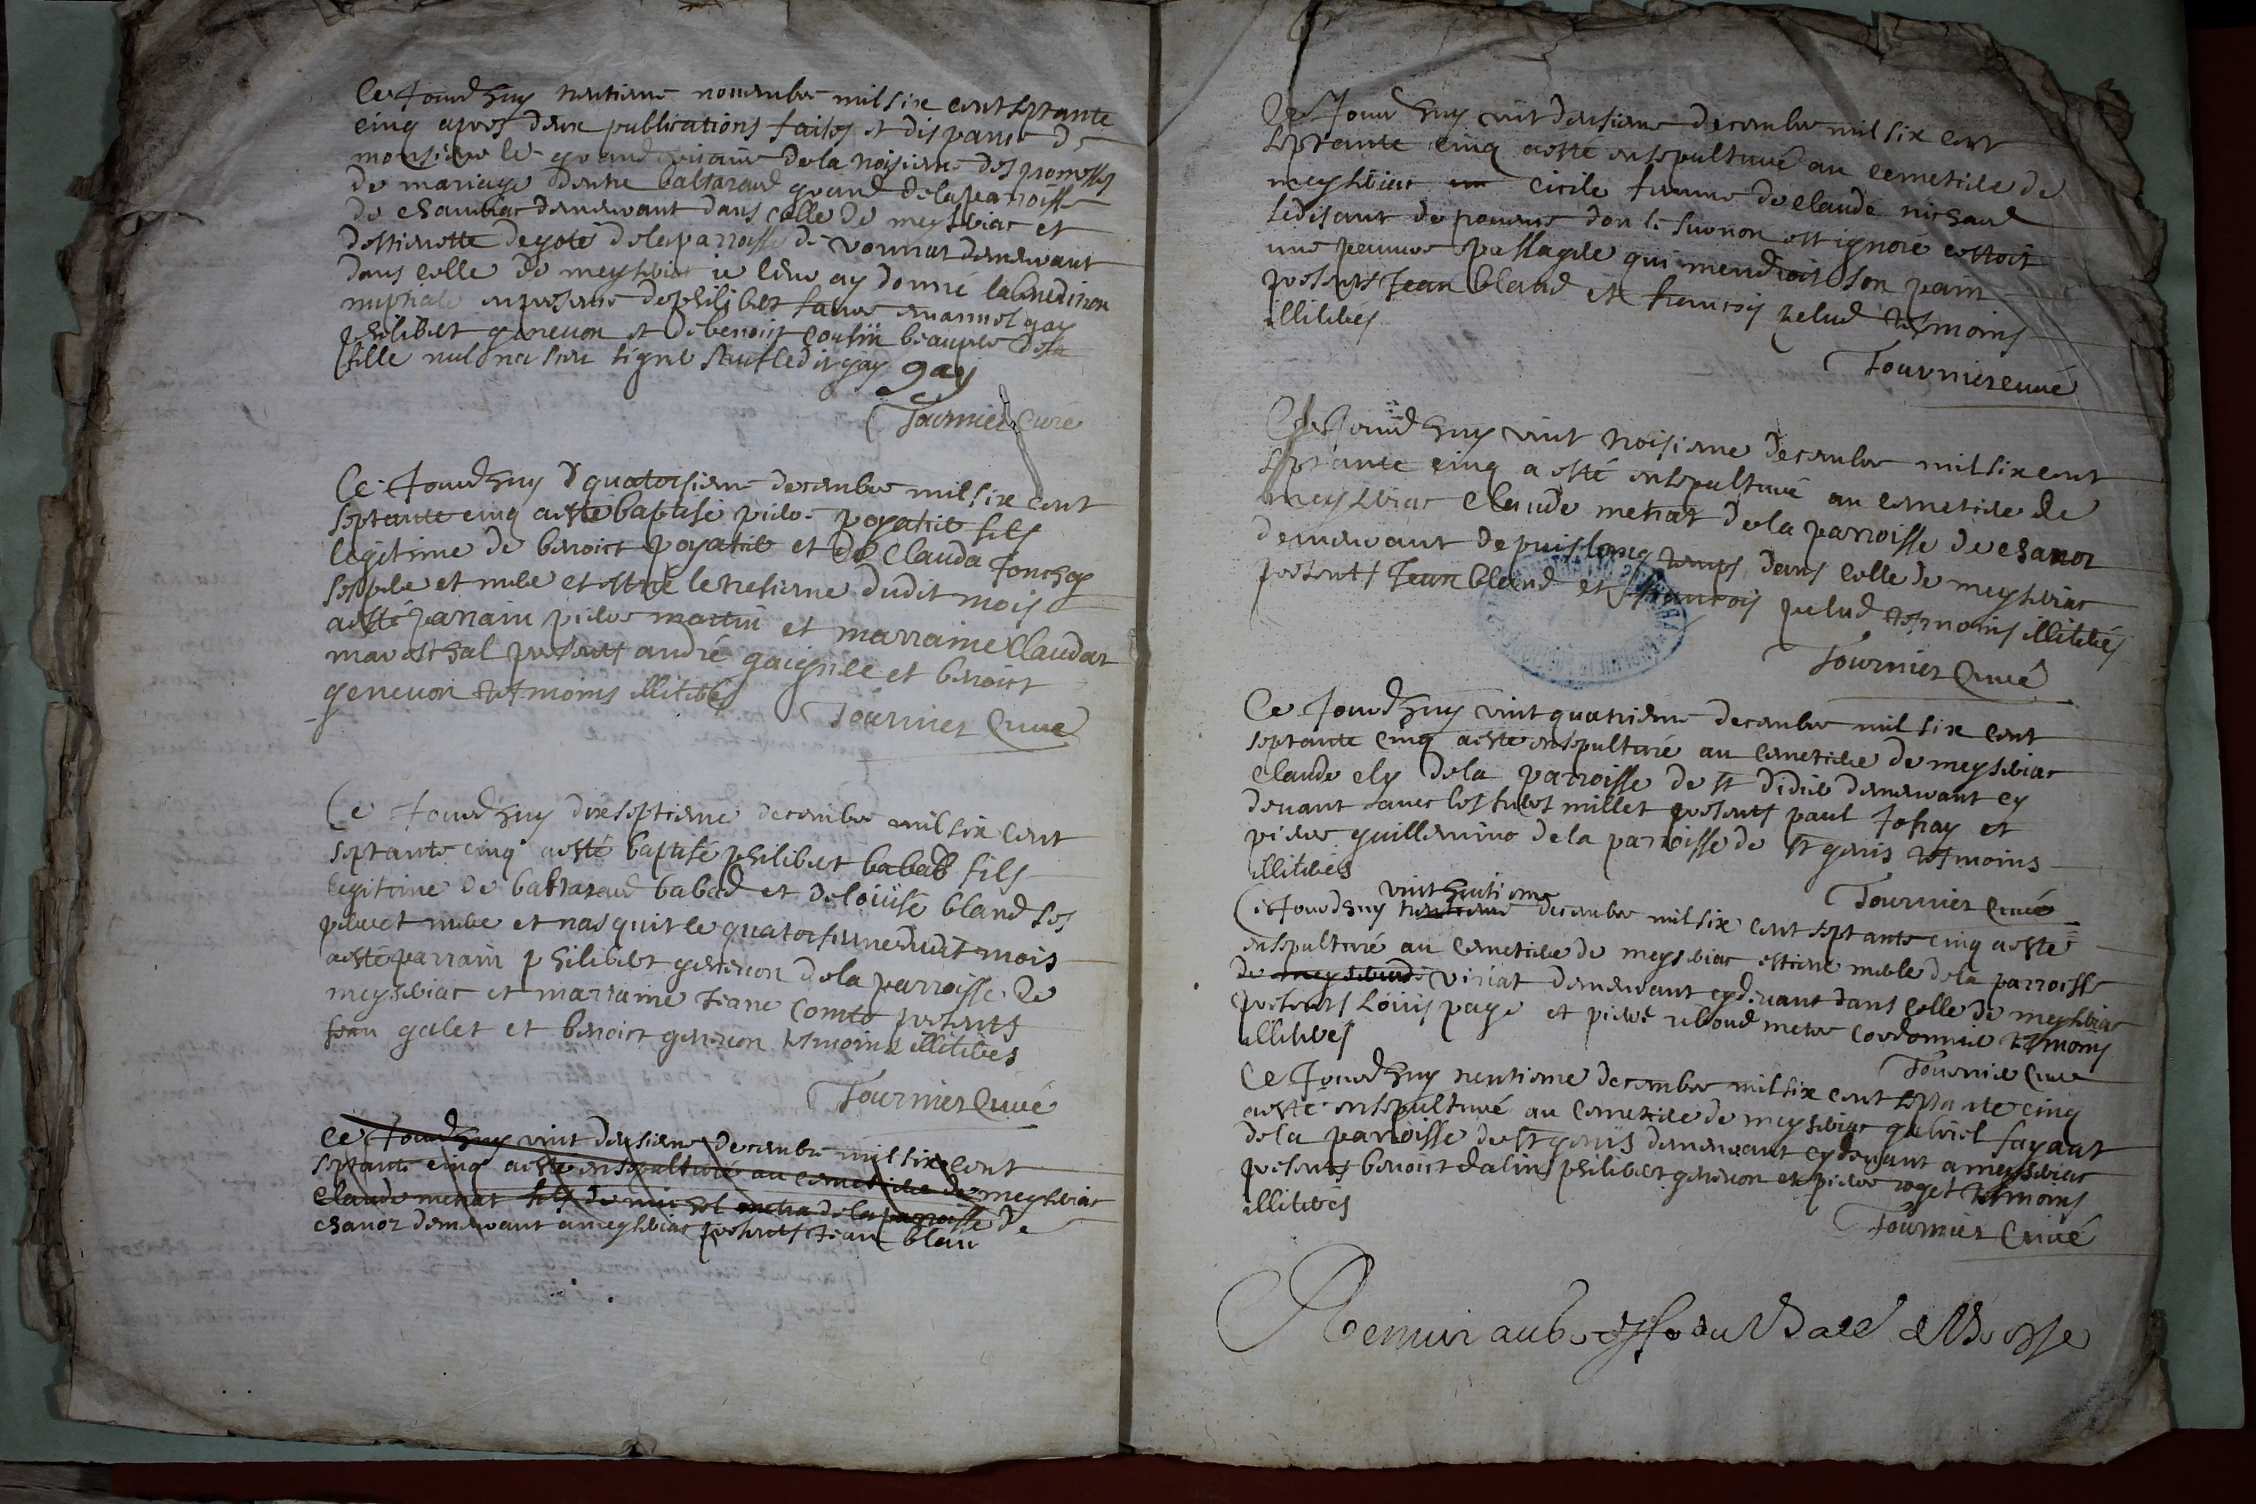 Ce Jourdhuy trentieme novembre mil six cent septante
cinq apres deux publications faites et dispance de
monsieur le grand vicaire de la troisieme des promesses
de mariage dentre baltazard grand de la parroisse
de chaveiriac demeurant dans celle de meyseriac et
destiennette degote de la parroisse de vonnas demeurant
dans celle de meyseriac ie leur ay donné la benediction
nuptiale en presence de philibert favre emannuel gay
philibert genevon et de benoist cousin beaupere de la
fille nul na sceu signe sauf ledit gay gay
Tournier Curé
Ce Jourdhuy quatorsieme decembre mil six cent
septante cinq a esté baptisé pierre poyatier fils
legitime de benoist poyatier et de Clauda Jonchay
ses pere et mere et est né le tresieme dudit mois
a esté parrain pierre martin et marraine Claudaz
mareschal presents andré gaignere et benoist
genevon tesmoins illiterés
Tournier Curé
Ce Jourdhuy dixseptieme decembre mil six cent
septante cinq a esté baptisé philibert babad fils
legitime de baltazard babad et de louïse bland ses
pere et mere et nasquit le quatorsieme dudit mois
a esté parrain philibert genevon de la parroisse de
meyseriac et marraine Jeane Comte presents
Jean galet et benoist genevon tesmoins illiterés
Tournier Curé
Ce Jourdhuy vint deusieme Decembre mil six cent
septante cinq a esté ensepulturé au cemetiere de meyseriac
Claude metrat fils de michel metra de la parroisse de
chanoz demeurant a meyseriac presents Jean blan
Ce Jourdhuy vint deusieme decembre mil six cent
septante cinq a esté ensepulturé au cemetiere de
meyseriac cicile femme de claude richard
se disant de don le surnon est ignoré cestoit
une pauvre passagere qui mendioit son pain
presents Jean bland et francois pelud tesmoins
illiterés
Tournier curé
Ce Jourdhuy vint troisieme decembre mil six cent
septante cinq a esté ensepulturé au cemetiere de
meyseriac Claude metrat de la parroisse de chanoz
demeurant depuis long temps dans celle de meyseriac
presents Jean bland et francois pelud tesmoins illiterés
Tournier Curé
Ce Jourdhuy vint quatrieme decembre mil six cent
septante cinq a esté ensepulturé au cemetiere de meyseriac
Claude ely de la parroisse de st Didier demeurant cy
devant avec les millet presents paul Jofray et
pierre guillermino de la parroisse de st genis tesmoins
illiterés
Tournier Curé
vint huitieme
Ce Jourdhuy trentieme decembre mil six cent septante cinq a esté
ensepulturé au cemetiere de meyseriac estiene merle de la parroisse
de viriat demeurant cy devant dans celle de meyseriac
presents Louis page et pierre reboud metre cordonnier tesmoins
illiterés
Tournier Curé
Ce Jourdhuy trentieme decembre mil six cent septante cinq
a esté ensepulturé au cemetiere de meyseriac gabriel fayart
de la parroisse de st genis demeurant cy devant a meyseriac
presents benoist dalin philibert genevon et pierre roget tesmoins
illiterés
Tournier Curé